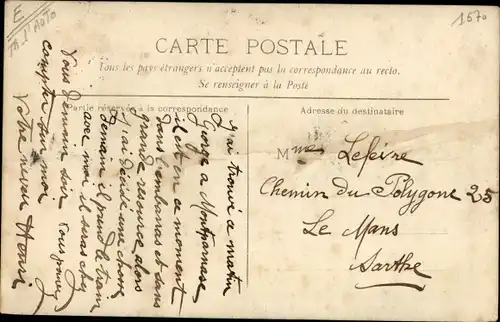 E
Th. l'Auto
1570
CARTE POSTALE
Tous les pays étrangers n'acceptent pas la correspondance au recto.
Se renseigner à la Poste
Partie réservée à la correspondance
Adresse du destinataire
J'ai trouvé ce matin
George a Montparnase
il est en ce moment
dans l'embaras et sans
grande resource alors
j'ai décidé une chose
demain il prend le train
avec moi il sera chez
Vous demain soir
compter sur moi
Votre neveu Henri
Mme Lefeivre
Chemin du Polygone 25
Le Mans
Sarthe